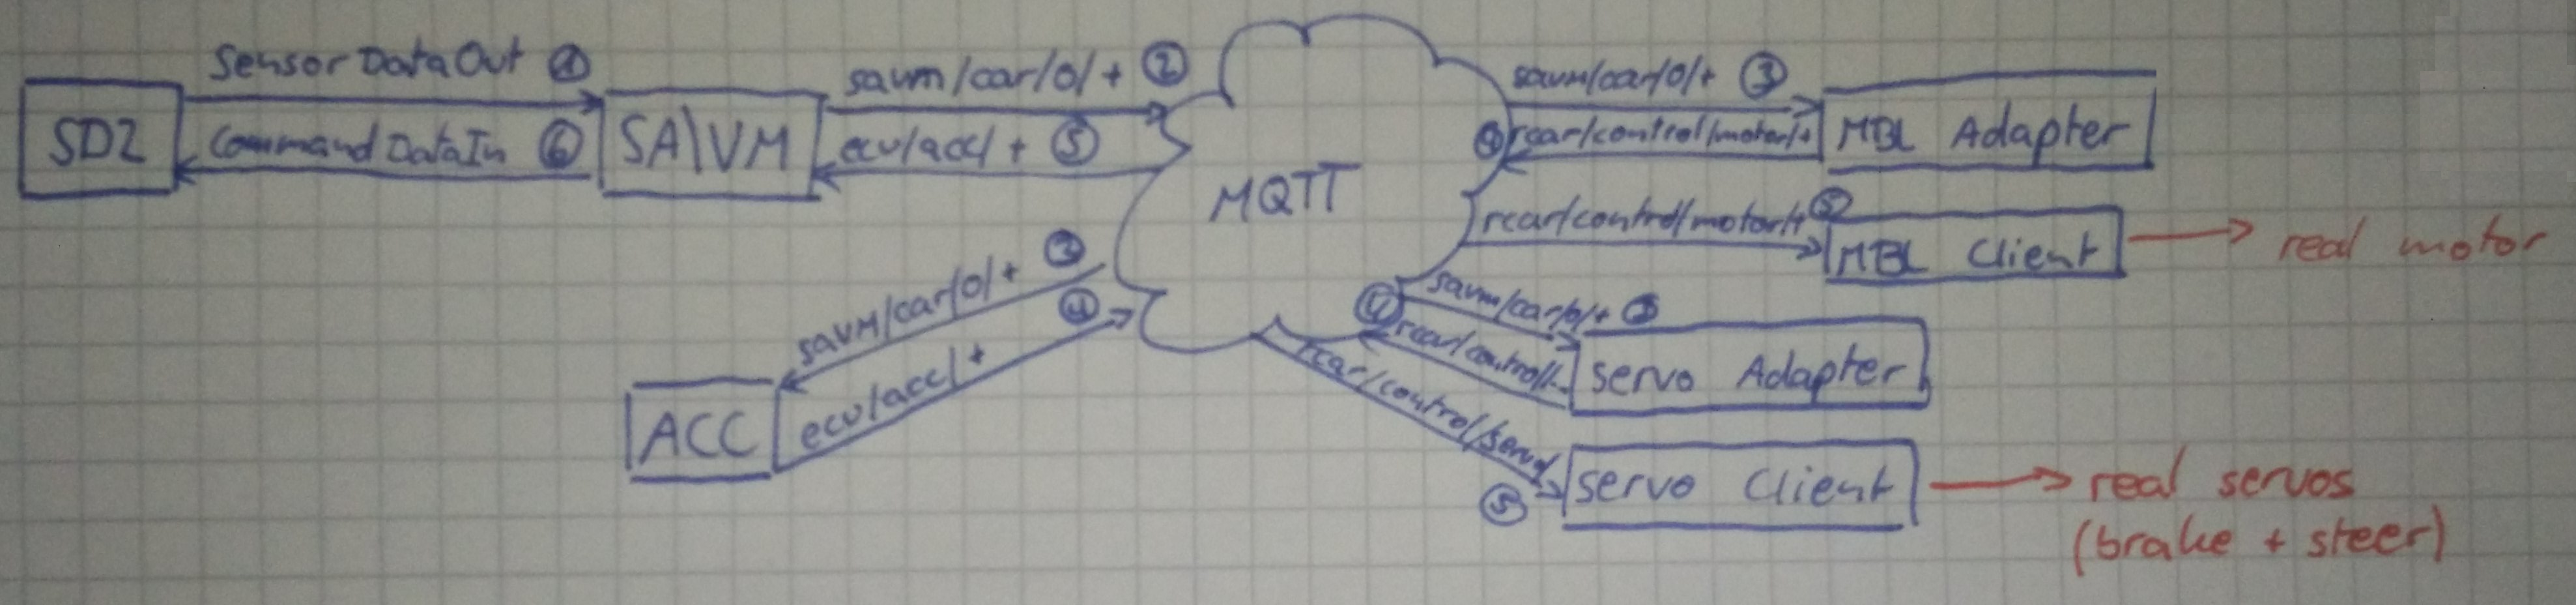 SensorDataOut ①
SD2
CommandDataIn ⑥
SA\VM
savm/car/0/+ ②
ecu/acc/+ ⑤
MQTT
savm/car/0/+ ③
④ rcar/control/motor/+
MBL Adapter
rcar/control/motor/+ ⑤
MBL Client
real motor
savm/car/0/+ ③
ecu/acc/+ ④
ACC
savm/car/0/+ ③
④ rcar/control/..
servo Adapter
rcar/control/servo/
⑤
servo Client
real servos
(brake + steer)